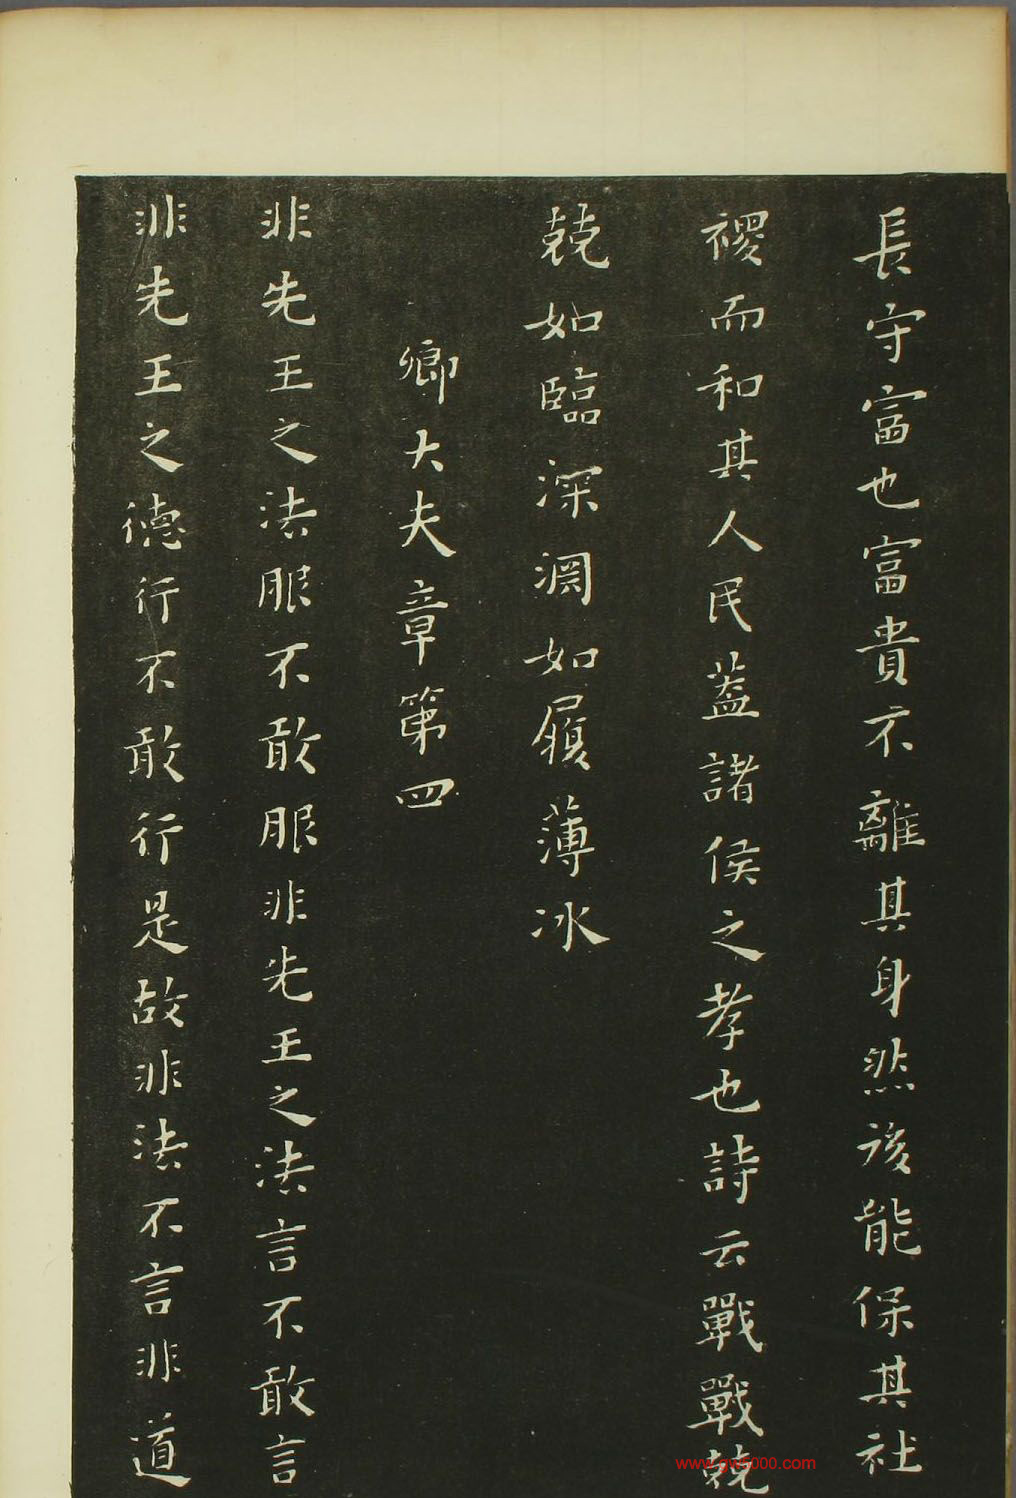 長守富也富貴不離其身然後能保其社
稷而和其人民蓋諸侯之孝也詩云戰戰兢
兢如臨深淵如履薄冰
卿大夫章第四
非先王之法服不敢服非先王之法言不敢言
非先王之德行不敢行是故非法不言非道
www.gw5000.com